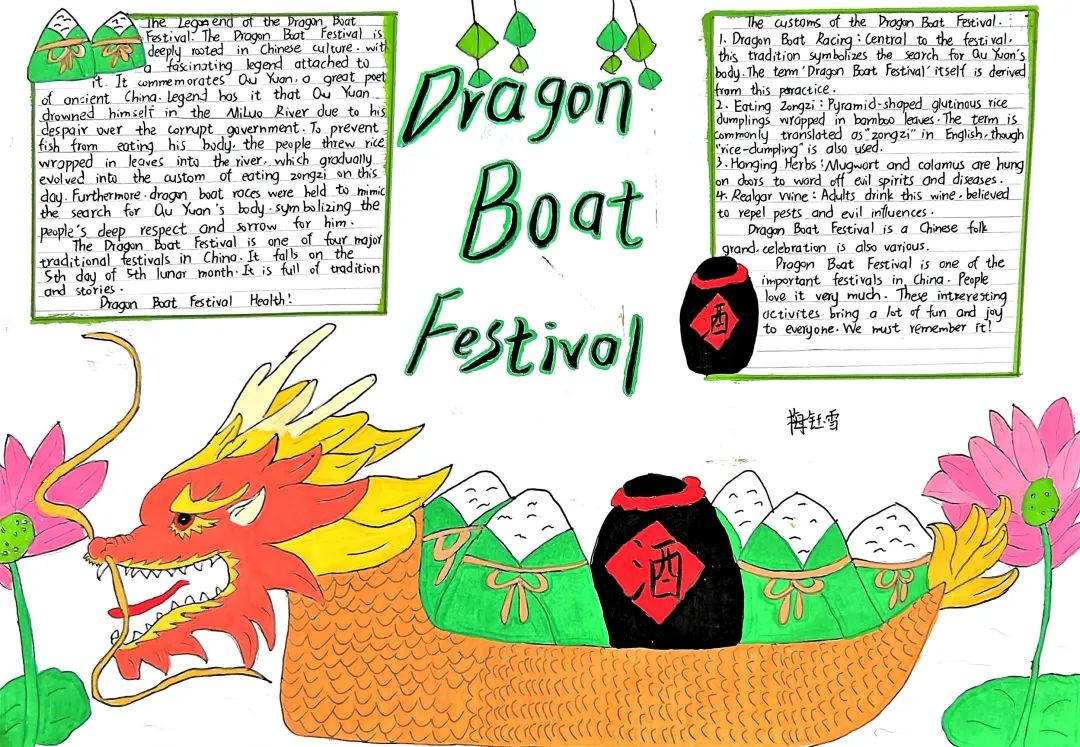 The Legangend of the Dragon Boat
Festival. The Dragon Boat Festival is
deeply rooted in Chinese culture. with
a fascinating legend attached to
it. It commemorates Qu Yuan, a great poet
of ancient China. Legend has it that Qu Yuan
drowned himself in the MiLuo River due to his
despair over the corrupt government. To prevent
fish from eating his body, the people threw rice
wrapped in leaves into the river, which gradually
evolved into the custom of eating zongzi on this
day. Furthermore. dragon boat races were held to mimic
the search for Qu Yuan's body. symbolizing the
people's deep respect and sorrow for him.
The Dragon Boat Festival is one of four major
traditional festivals in China. It falls on the
5th day of 5th lunar month. It is full of tradition
and stories.
Dragon Boat Festival Health!
Dragon
Boat
Festival
The customs of the Dragon Boat Festival.
1. Dragon Boat Racing: Central to the festival,
this tradition symbolizes the search for Qu Yuan's
body. The term 'Dragon Boat Festival' itself is derived
from this practice.
2. Eating Zongzi: Pyramid-shaped glutinous rice
dumplings wrapped in bamboo leaves. The term is
commonly translated as "zongzi" in English, though
"rice-dumpling" is also used.
3. Hanging Herbs: Mugwort and calamus are hung
on doors to ward off evil spirits and diseases.
4. Realgar Wine: Adults drink this wine, believed
to repel pests and evil influences.
Dragon Boat Festival is a Chinese folk
grand. celebration is also various.
Dragon Boat Festival is one of the
important festivals in China. People
love it very much. These intreresting
activites bring a lot of fun and joy
to everyone. We must remember it!
酒
梅钰雪
酒